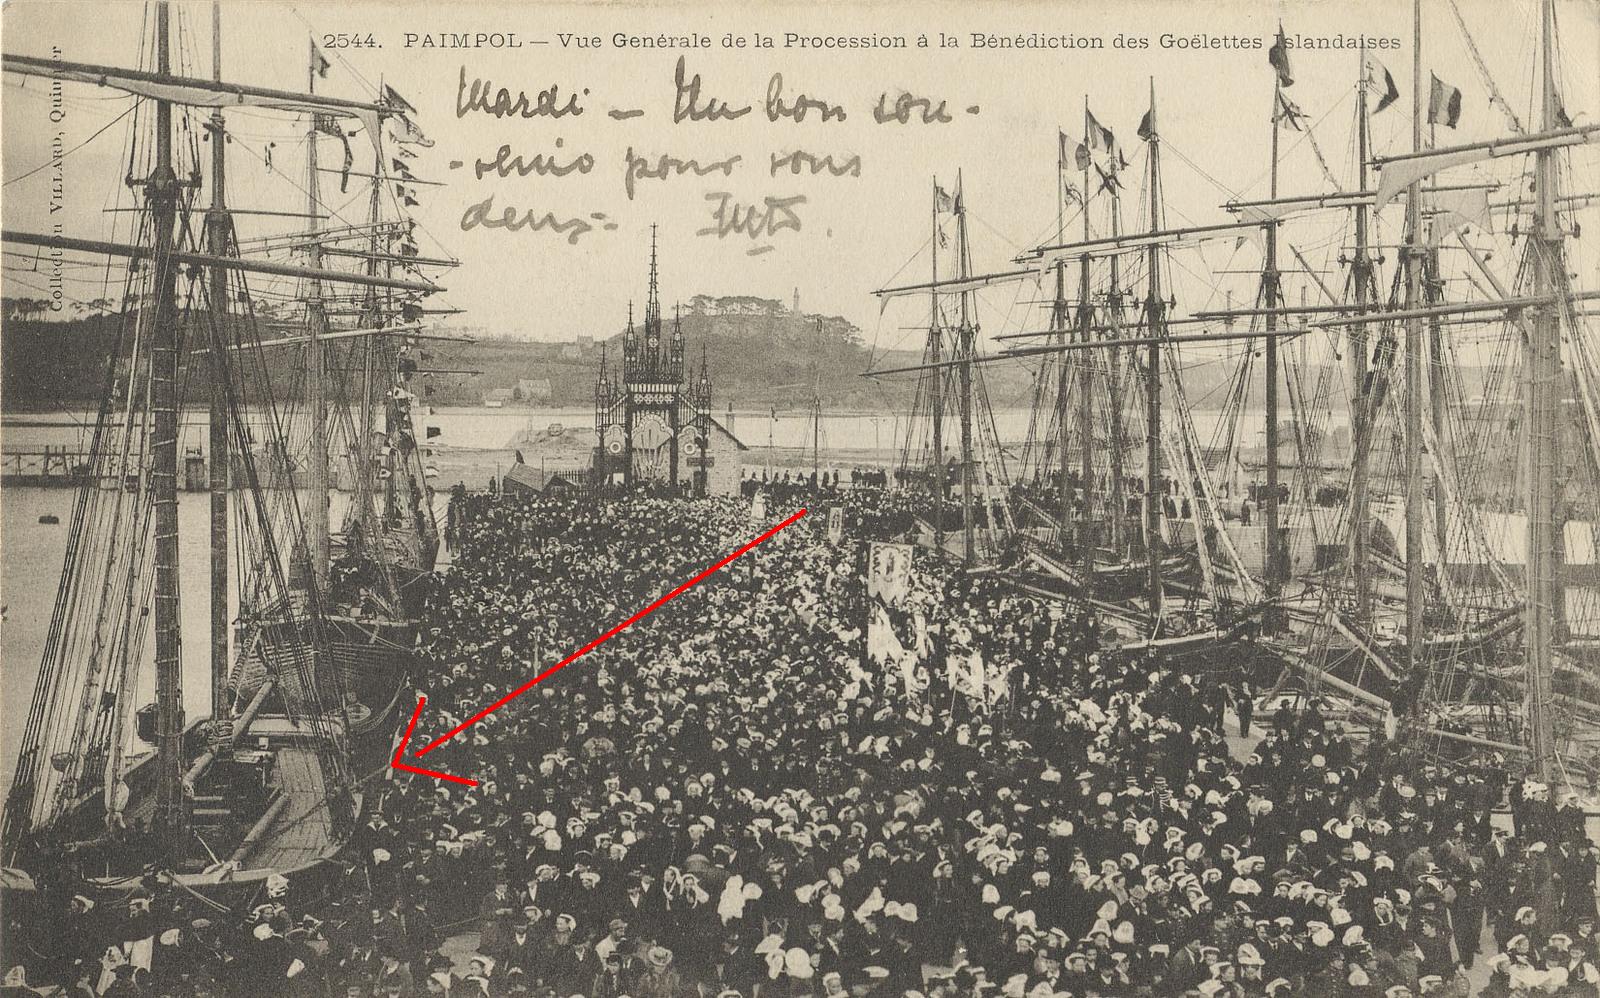 2544. PAIMPOL — Vue Genérale de la Procession à la Bénédiction des Goëlettes Islandaises
Mardi — Un bon sou-
-venir pour vous
deux-
Collection VILLARD, Quimper